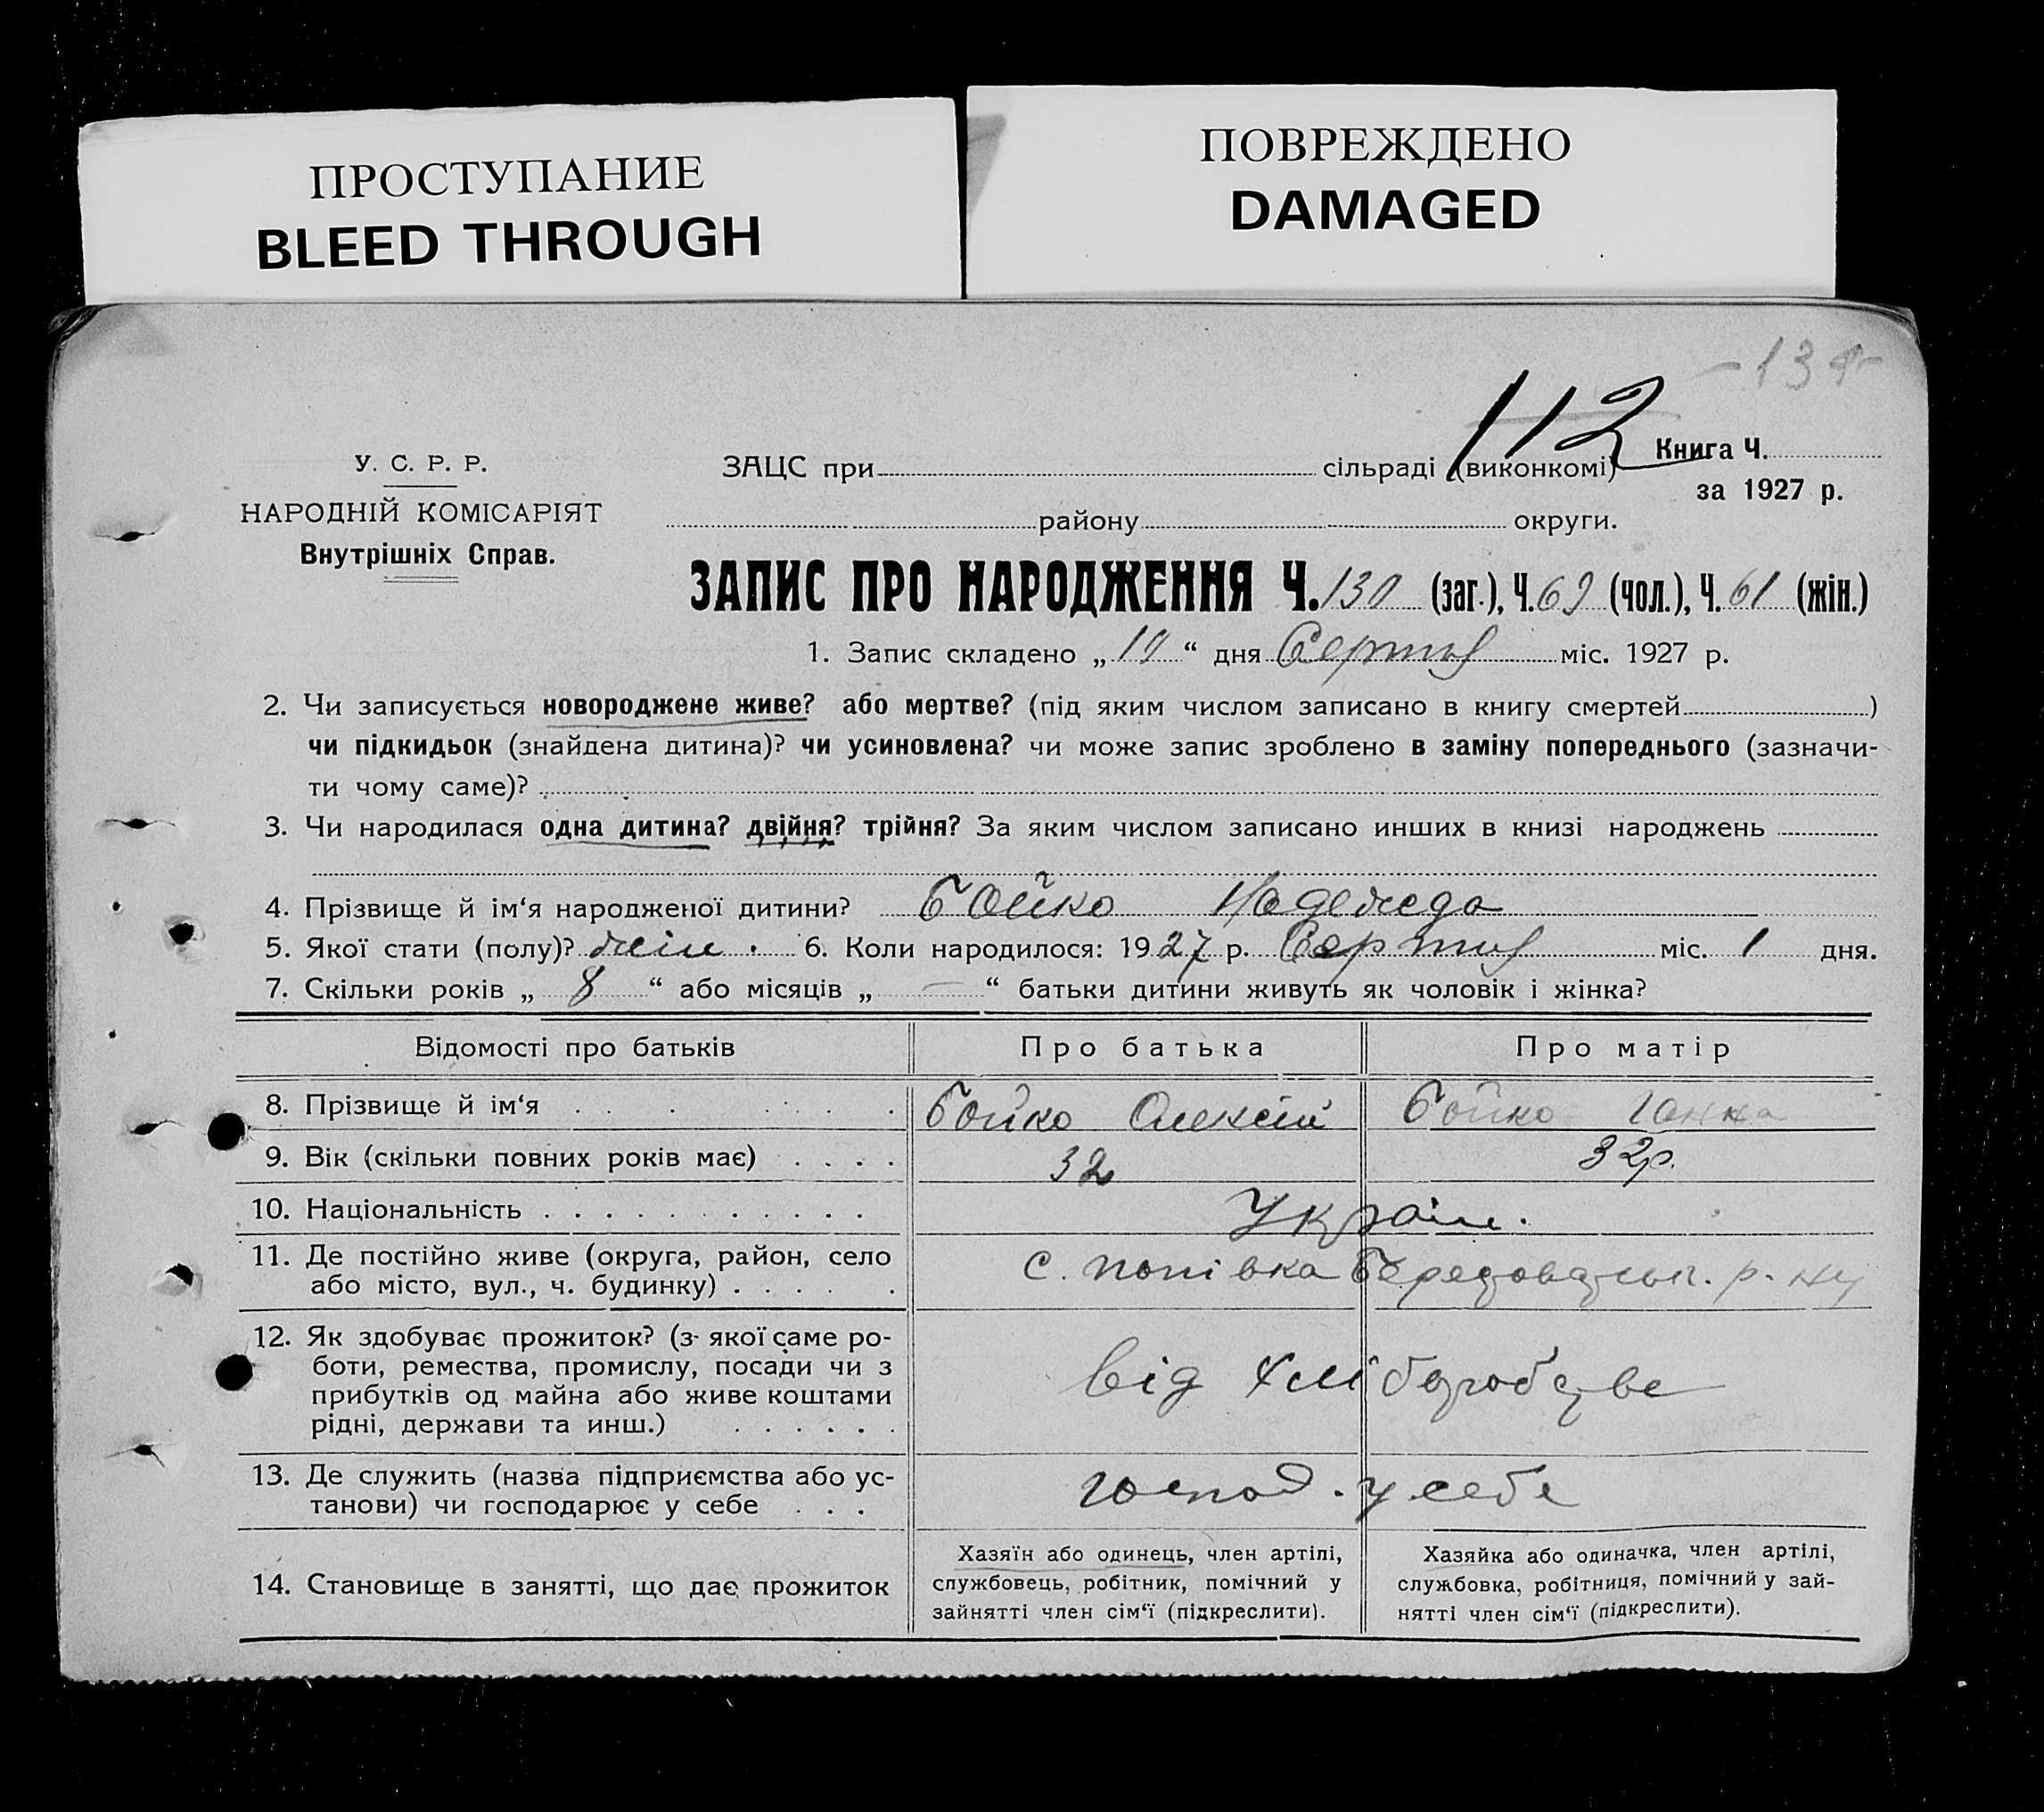 ПРОСТУПАНИЕ
BLEED THROUGH
ПОВРЕЖДЕНО
DAMAGED
112
У. С. Р. Р.
НАРОДНІЙ КОМІСАРІЯТ
Внутрішніх Справ.
ЗАЦС при сільраді (виконкомі)
Книга Ч.
за 1927 р.
району округи.
ЗАПИС ПРО НАРОДЖЕННЯ Ч. 130 (заг.), Ч. 69 (чол.), Ч. 61 (жін.)
1. Запис складено „ “ дня міс. 1927 р.
2. Чи записується новороджене живе? або мертве? (під яким числом записано в книгу смертей )
чи підкидьок (знайдена дитина)? чи усиновлена? чи може запис зроблено в заміну попереднього (зазначи-
ти чому саме)?
3. Чи народилася одна дитина? двійня? трійня? За яким числом записано инших в книзі народжень
4. Прізвище й ім‘я народженої дитини? Бойко Надежда
5. Якої стати (полу)? жін. 6. Коли народилося: 1927 р. міс. 1 дня.
7. Скільки років „ 8 “ або місяців „ — “ батьки дитини живуть як чоловік і жінка?
Відомості про батьків Про батька Про матір
8. Прізвище й ім‘я Бойко Олексій Бойко Ганна
9. Вік (скільки повних років має) 32 32р.
10. Національність Україн.
11. Де постійно живе (округа, район, село
або місто, вул., ч. будинку)
с. Попівка р-ну
12. Як здобуває прожиток? (з якої саме ро-
боти, ремества, промислу, посади чи з
прибутків од майна або живе коштами
рідні, держави та инш.)
від
13. Де служить (назва підприємства або ус-
танови) чи господарює у себе
господ. у себе
14. Становище в занятті, що дає прожиток
Хазяїн або одинець, член артілі,
службовець, робітник, помічний у
зайнятті член сім‘ї (підкреслити).
Хазяйка або одиначка, член артілі,
службовка, робітниця, помічний у зай-
нятті член сім‘ї (підкреслити).